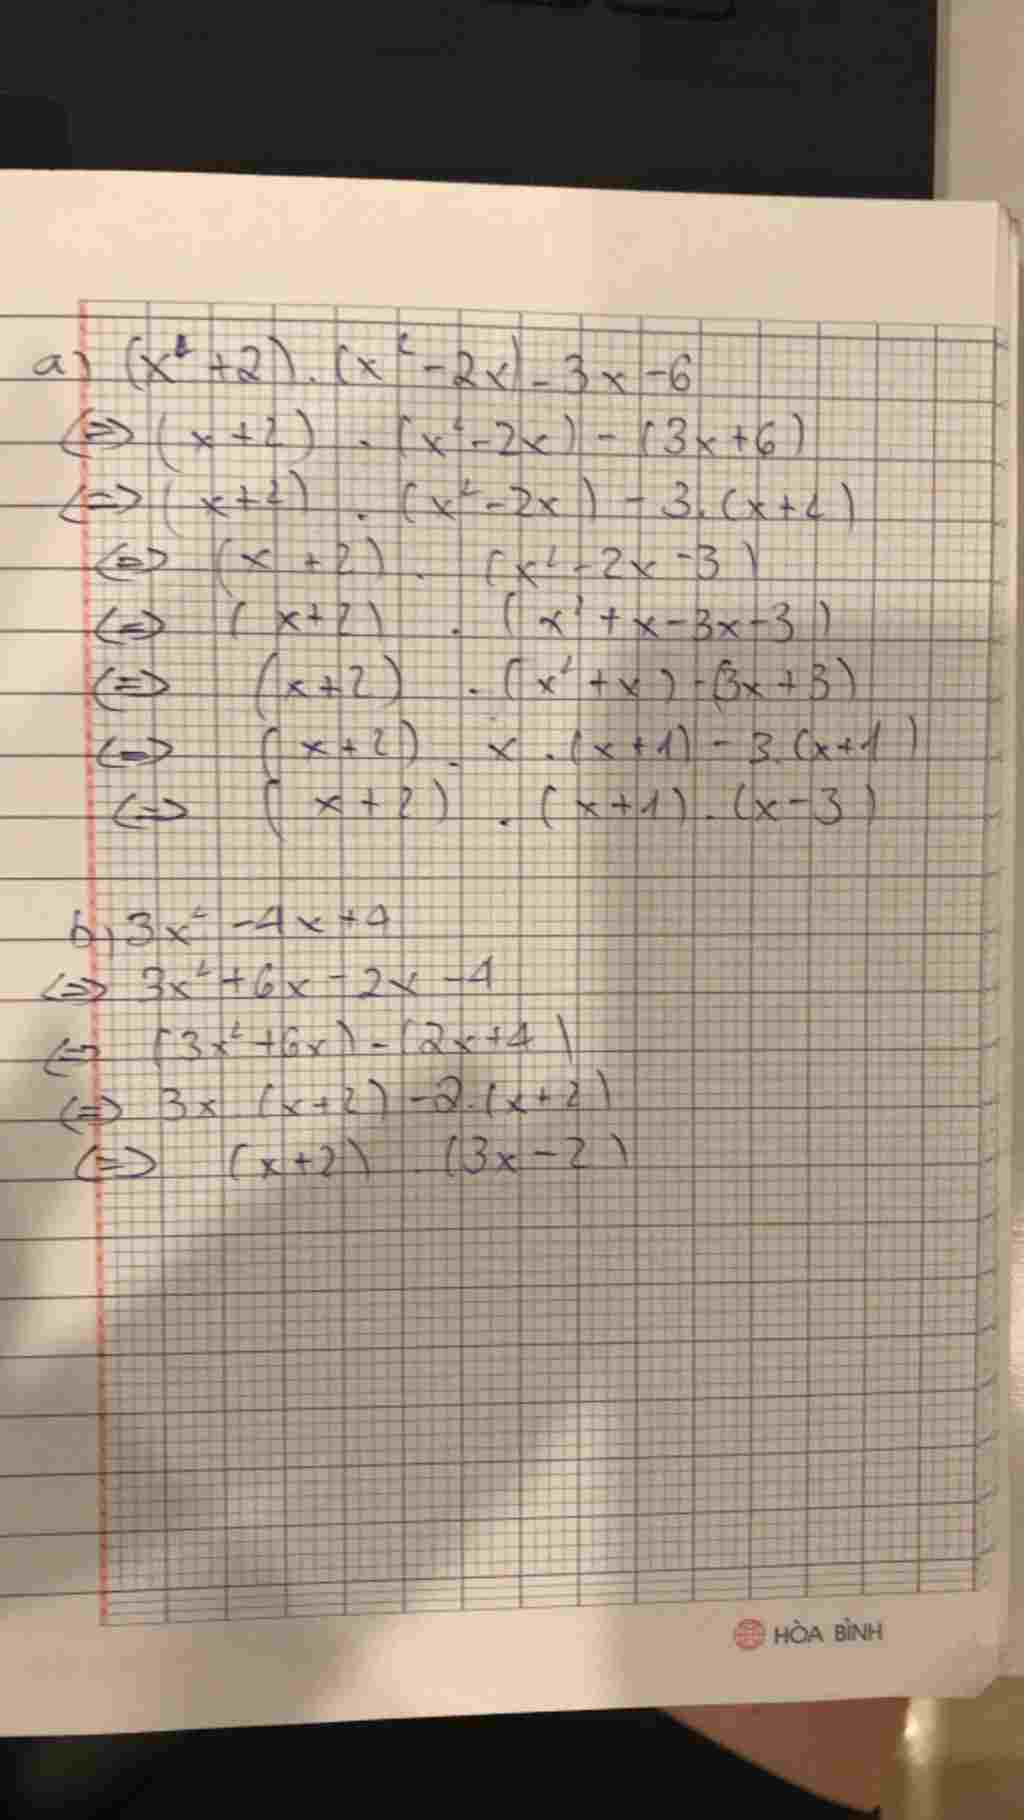 a) (x² + 2) . (x² - 2x) - 3x - 6
<=> (x + 2) . (x² - 2x) - (3x + 6)
<=> (x + 2) . (x² - 2x) - 3. (x + 2)
<=> (x + 2) . (x² - 2x - 3)
<=> (x + 2) . (x² + x - 3x - 3)
<=> (x + 2) . (x² + x) - (3x + 3)
<=> (x + 2) . x . (x + 1) - 3. (x + 1)
<=> (x + 2) . (x + 1) . (x - 3)
b, 3x² - 4x + 4
<=> 3x² + 6x - 2x - 4
<=> (3x² + 6x) - (2x + 4)
<=> 3x (x + 2) - 2. (x + 2)
<=> (x + 2) . (3x - 2)
HÒA BÌNH